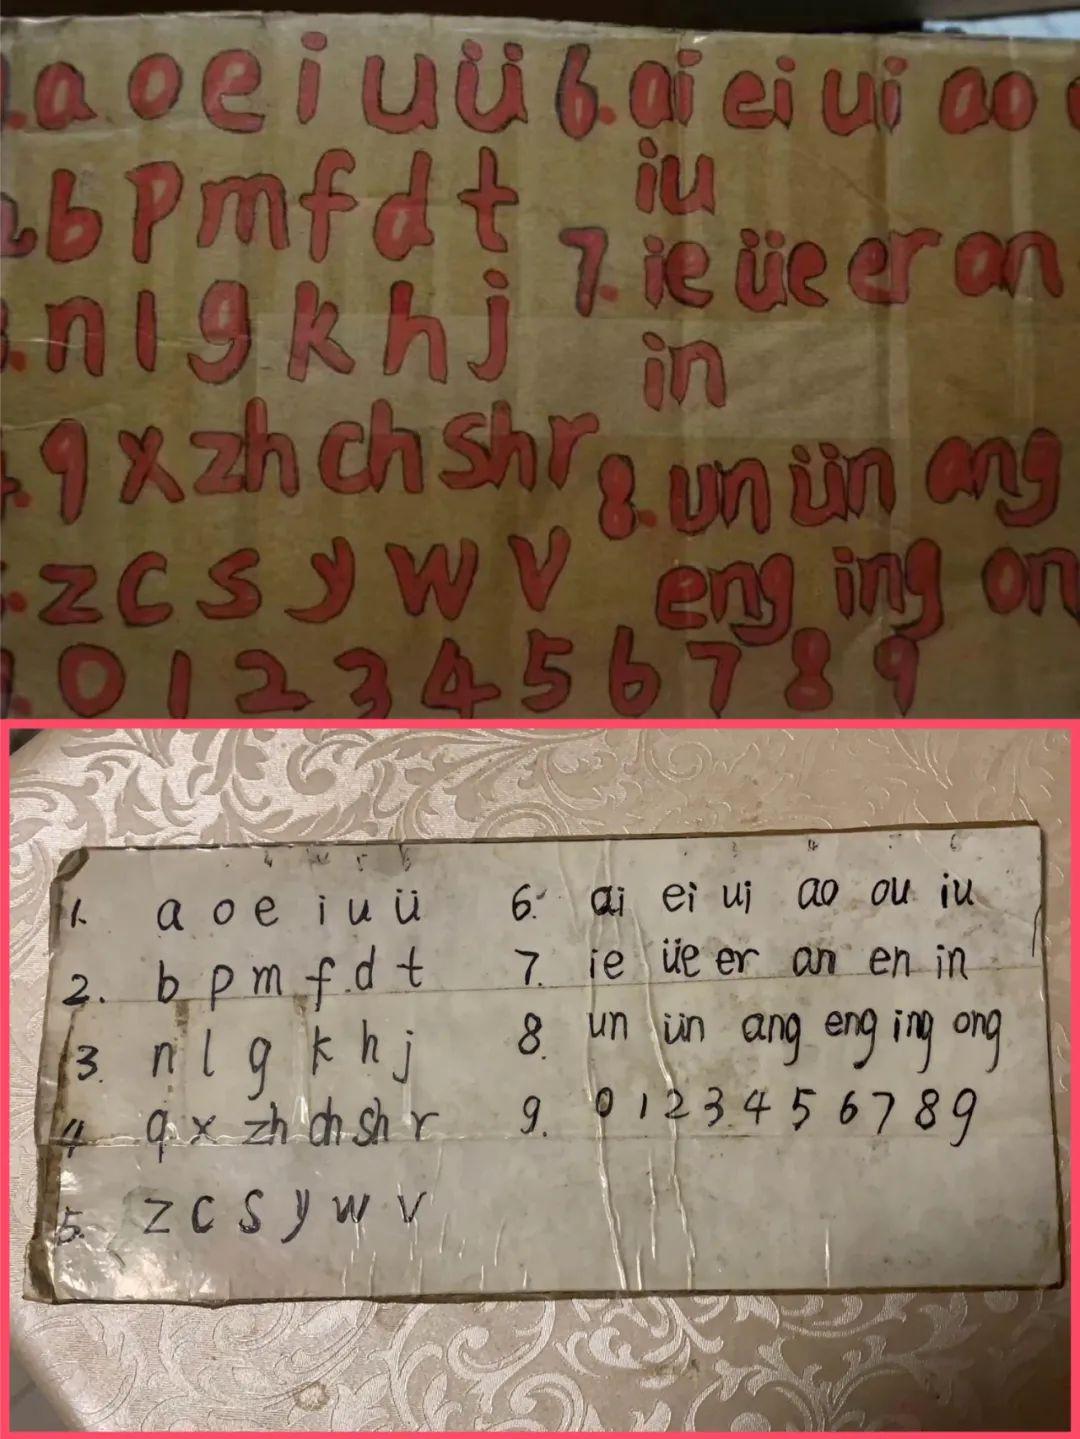 a o e i u ü 6. ai ei ui ao
b p m f d t iu
n l g k h j 7. ie üe er an
q x zh ch sh r in
z c s y w v 8. un ün ang
eng ing on
0 1 2 3 4 5 6 7 8 9
1. a o e i u ü
2. b p m f d t
3. n l g k h j
4. q x zh ch sh r
5. z c s y w v
6. ai ei ui ao ou iu
7. ie üe er an en in
8. un ün ang eng ing ong
9. 0 1 2 3 4 5 6 7 8 9